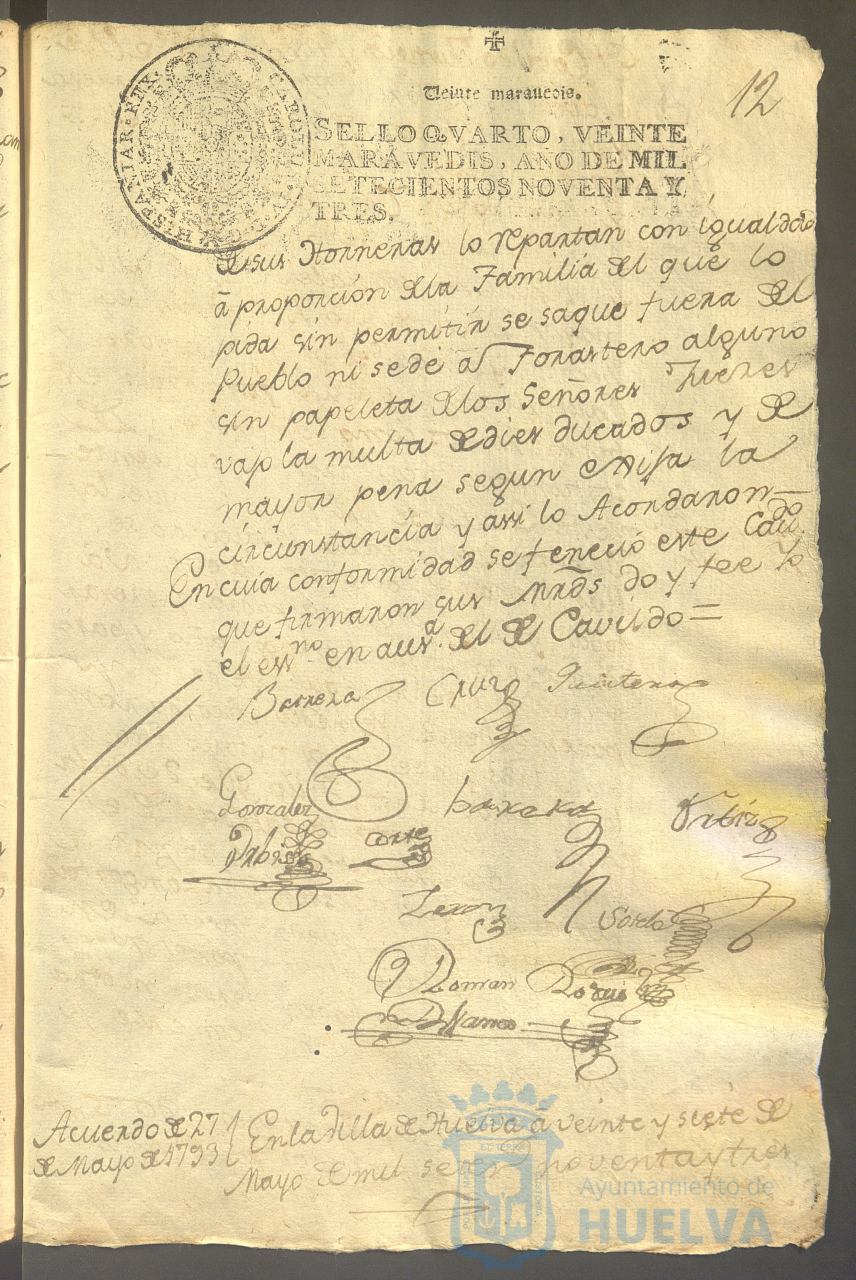 12
Veinte maravedis.
SELLO QVARTO, VEINTE
MARAVEDIS, AÑO DE MIL
SETECIENTOS NOVENTA Y
TRES.
CAROLUS IV D G HISPANIAR REX
de sus Horneras lo repartan con igualdad
â proporcion dela Familia del que lo
pida sin permitir se saque fuera del
Pueblo ni sedé a Forastero alguno
sin papeleta delos Señores Jueces
vajo la multa de dies ducados y de
mayor pena segun exija la
circunstancia y assi lo Acordaron
En cuia conformidad se feneció este Cavdo.
que firmaron sus Mrds do y fee Yo
el essno. en ausa. del de Cavildo =
Barrera Cruz Quintero
Gonzalez barrera Ortiz
Corte
Leron Sorela
Roman
Acuerdo de 27
de Mayo de 1793
En la Villa de Huelva â veinte y siete de
Mayo de mil setes noventa y tres
Ayuntamiento de
HUELVA